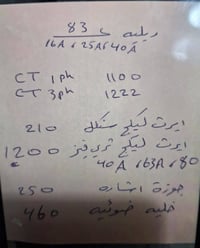 ريليه د 83
16A , 25A , 40A
CT 1ph 1100
CT 3ph 1222
ايرث ليكج سنكل 210
ايرث ليكج ثري فيز 1200
40A , 63A , 80
جوزة اشاره 250
خليه ضوئيه 460